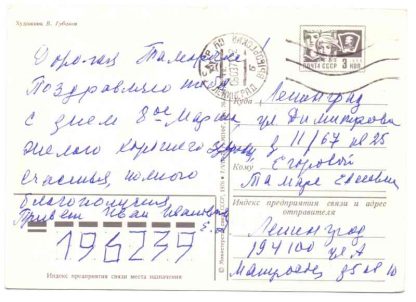 Художник В. Губанов
Дорогая Тамара!
Поздравляю тебя
с днем 8ое Марта
желаю хорошего здоровья
счастья, полного
благополучия.
Привет
196239
Индекс предприятия связи места назначения
ПОЧТА СССР 3 КОП
ЛЕНИНГРАД
Куда Ленинград
ул Димитрова
д 11/67 кв 25
Кому Егоровой
Тамаре Евсеевне
Индекс предприятия связи и адрес
отправителя
Ленинград
194100 ул
д 5 кв 10